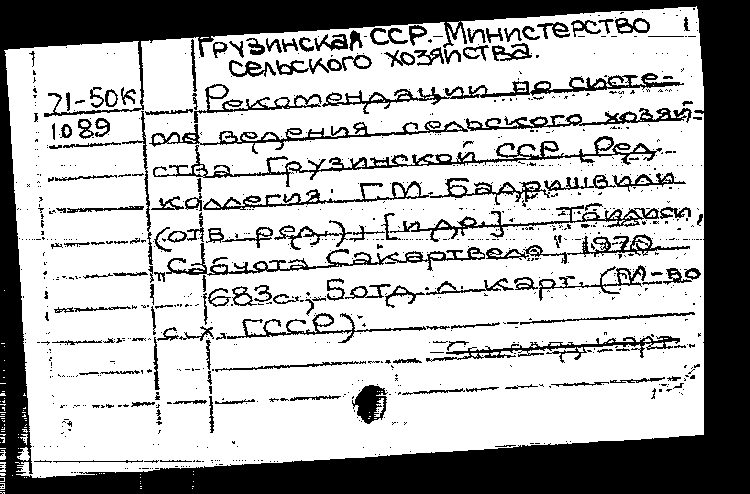 Грузинская ССР. Министерство 1
сельского хозяйства.
71-50к Рекомендации по систе-
1089 ме ведения сельского хозяй-
ства Грузинской ССР. [Ред.
коллегия: Г.М. Бадришвили
(отв. ред.), [и др.]. Тбилиси,
„Сабчота Сакартвело", 1970
683с.; 5 отд. л. карт. (М-во
с. х. ГССР).
См. след. карт.